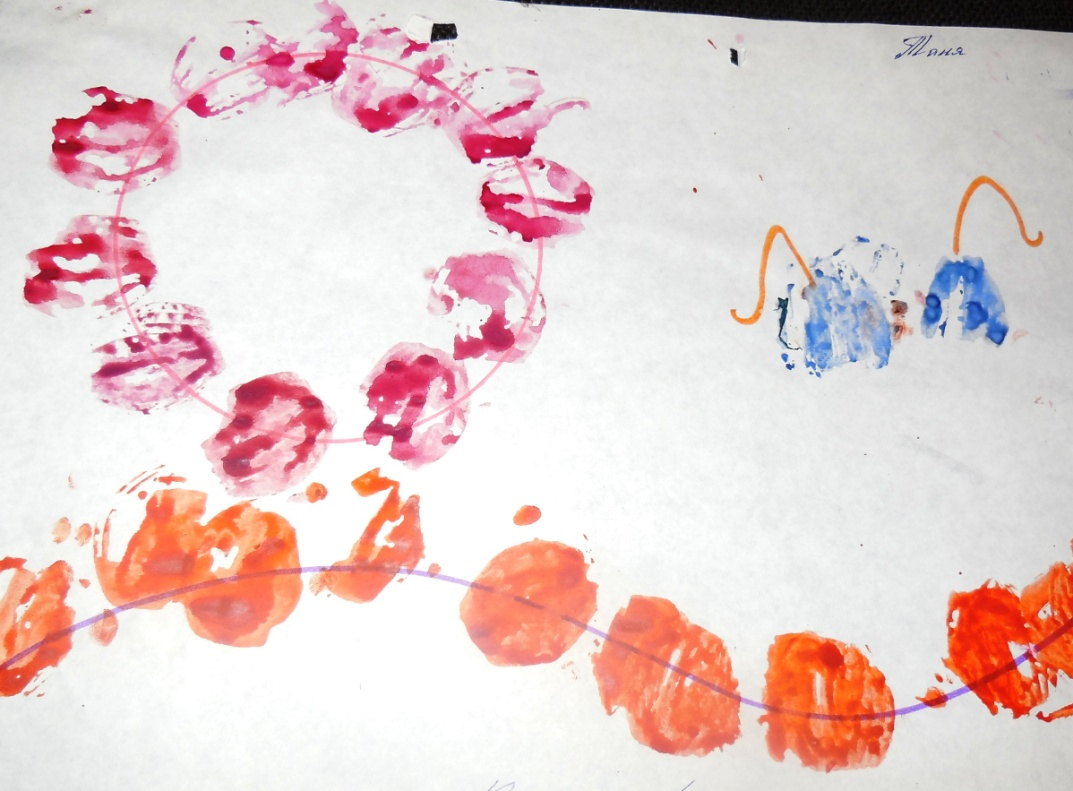 Таня